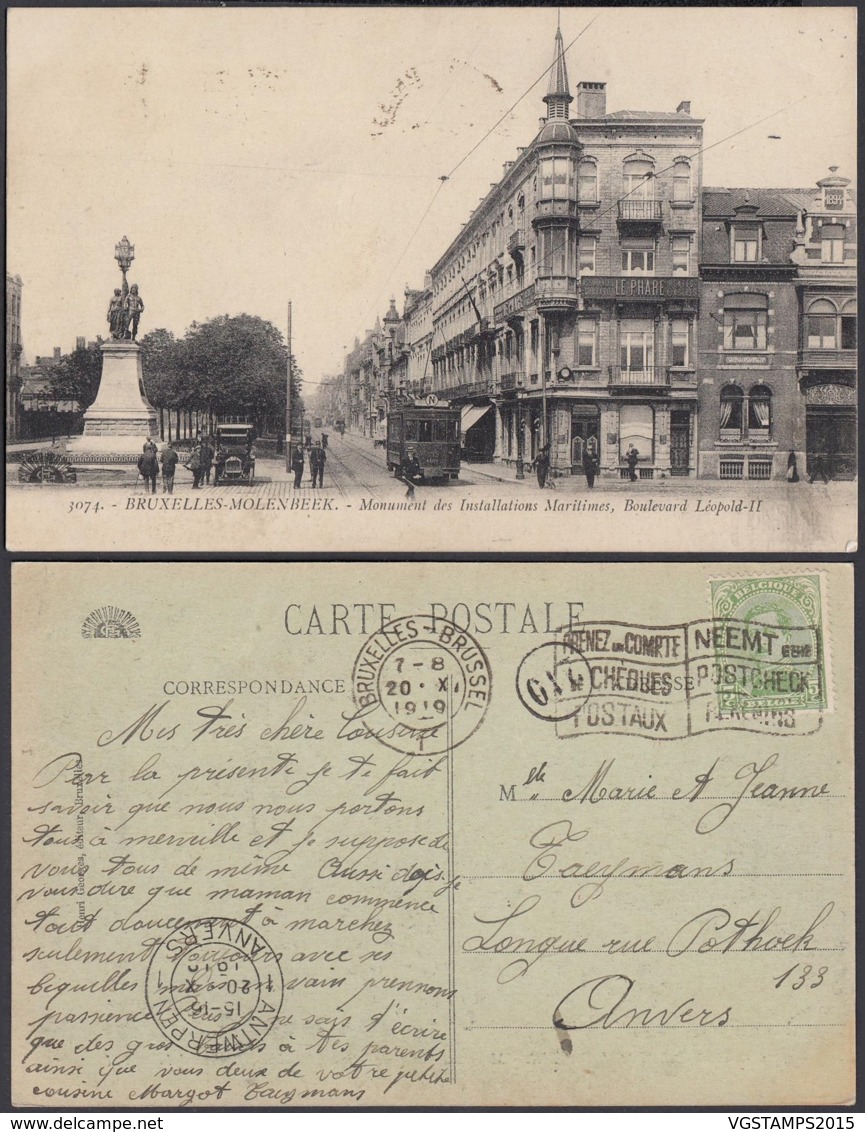 1894
LE PHARE
N
3074. - BRUXELLES-MOLENBEEK. - Monument des Installations Maritimes, Boulevard Léopold-II
CARTE POSTALE
CORRESPONDANCE
BRUXELLES - BRUSSEL
7 - 8
20 · XI
1919
1
BELGIQUE
PRENEZ UN COMPTE
CHÈQUES
POSTAUX
NEEMT EENE
POSTCHECK
REKENING
BELGIE
Mes très chère Cousine
Par la présente je te fait
savoir que nous nous portons
tous à merveille et je suppose de
vous tous de même Aussi dois je
vous dire que maman commence
tout doucement à marchez
seulement toujours avec ses
bequilles mais en vain prennons
passience je sais d'écrire
que des gros à tes parents
ainsi que vous deux de votre petite
cousine Margot Taeymans
Henri Georges, éditeur, Bruxelles
ANTWERPEN 1 ANVERS 1
15-16
20 XI
1919
Mlle Marie et Jeanne
Taeymans
Longue rue Pothoek
133
Anvers
VGSTAMPS2015